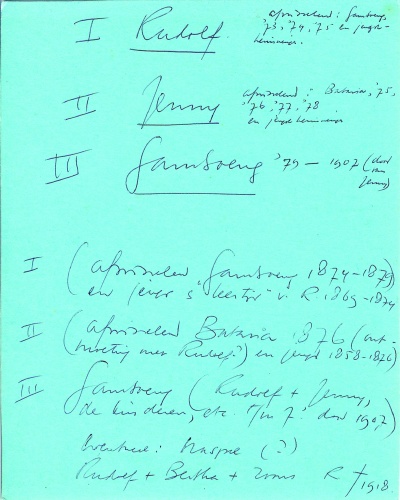 I Rudolf. afwisselend: Gamboeng,
'73, '74, '75 en jeugd-
herinneringen.
II Jenny afwisselend: Batavia, '75,
'76, '77, '78
en jeugdherinneringen
III Gamboeng '79 – 1907 (dood
van
Jenny)
I (afwisselend Gamboeng 1874–1879)
en jeugd v. R. 1869–1874
II (afwisselend Batavia 1876 (ont-
moeting met Rudolf) en jeugd 1858–1876)
III Gamboeng (Rudolf + Jenny,
de kinderen, etc. t/m J. dood 1907)
Eventueel: (?)
Rudolf + Bertha + zoons R † 1918